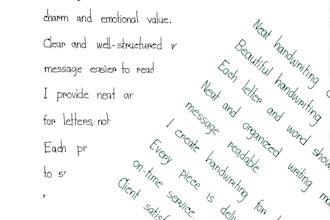 charm and emotional value.
Clear and well-structured
message easier to read
I provide neat
for letters,
Each
to
Neat handwriting
Beautiful handwriting
Each letter and word
Neat and organized writing
message readable.
I create handwriting for
Every piece is
on-time service
Client